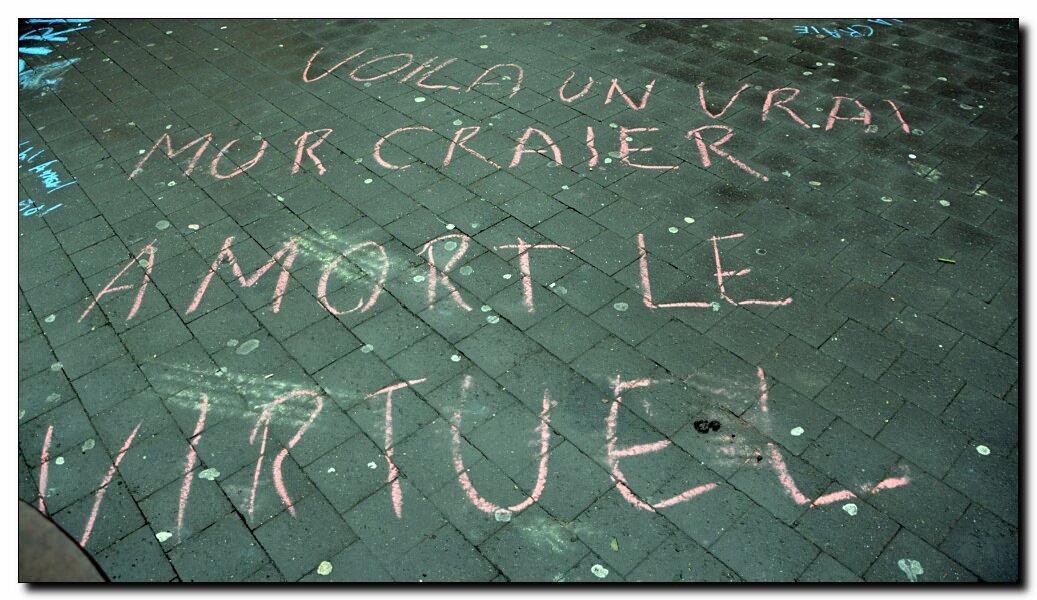 CRAIE
VOILA UN VRAI
MUR CRAIER
AMORT LE
VIRTUEL